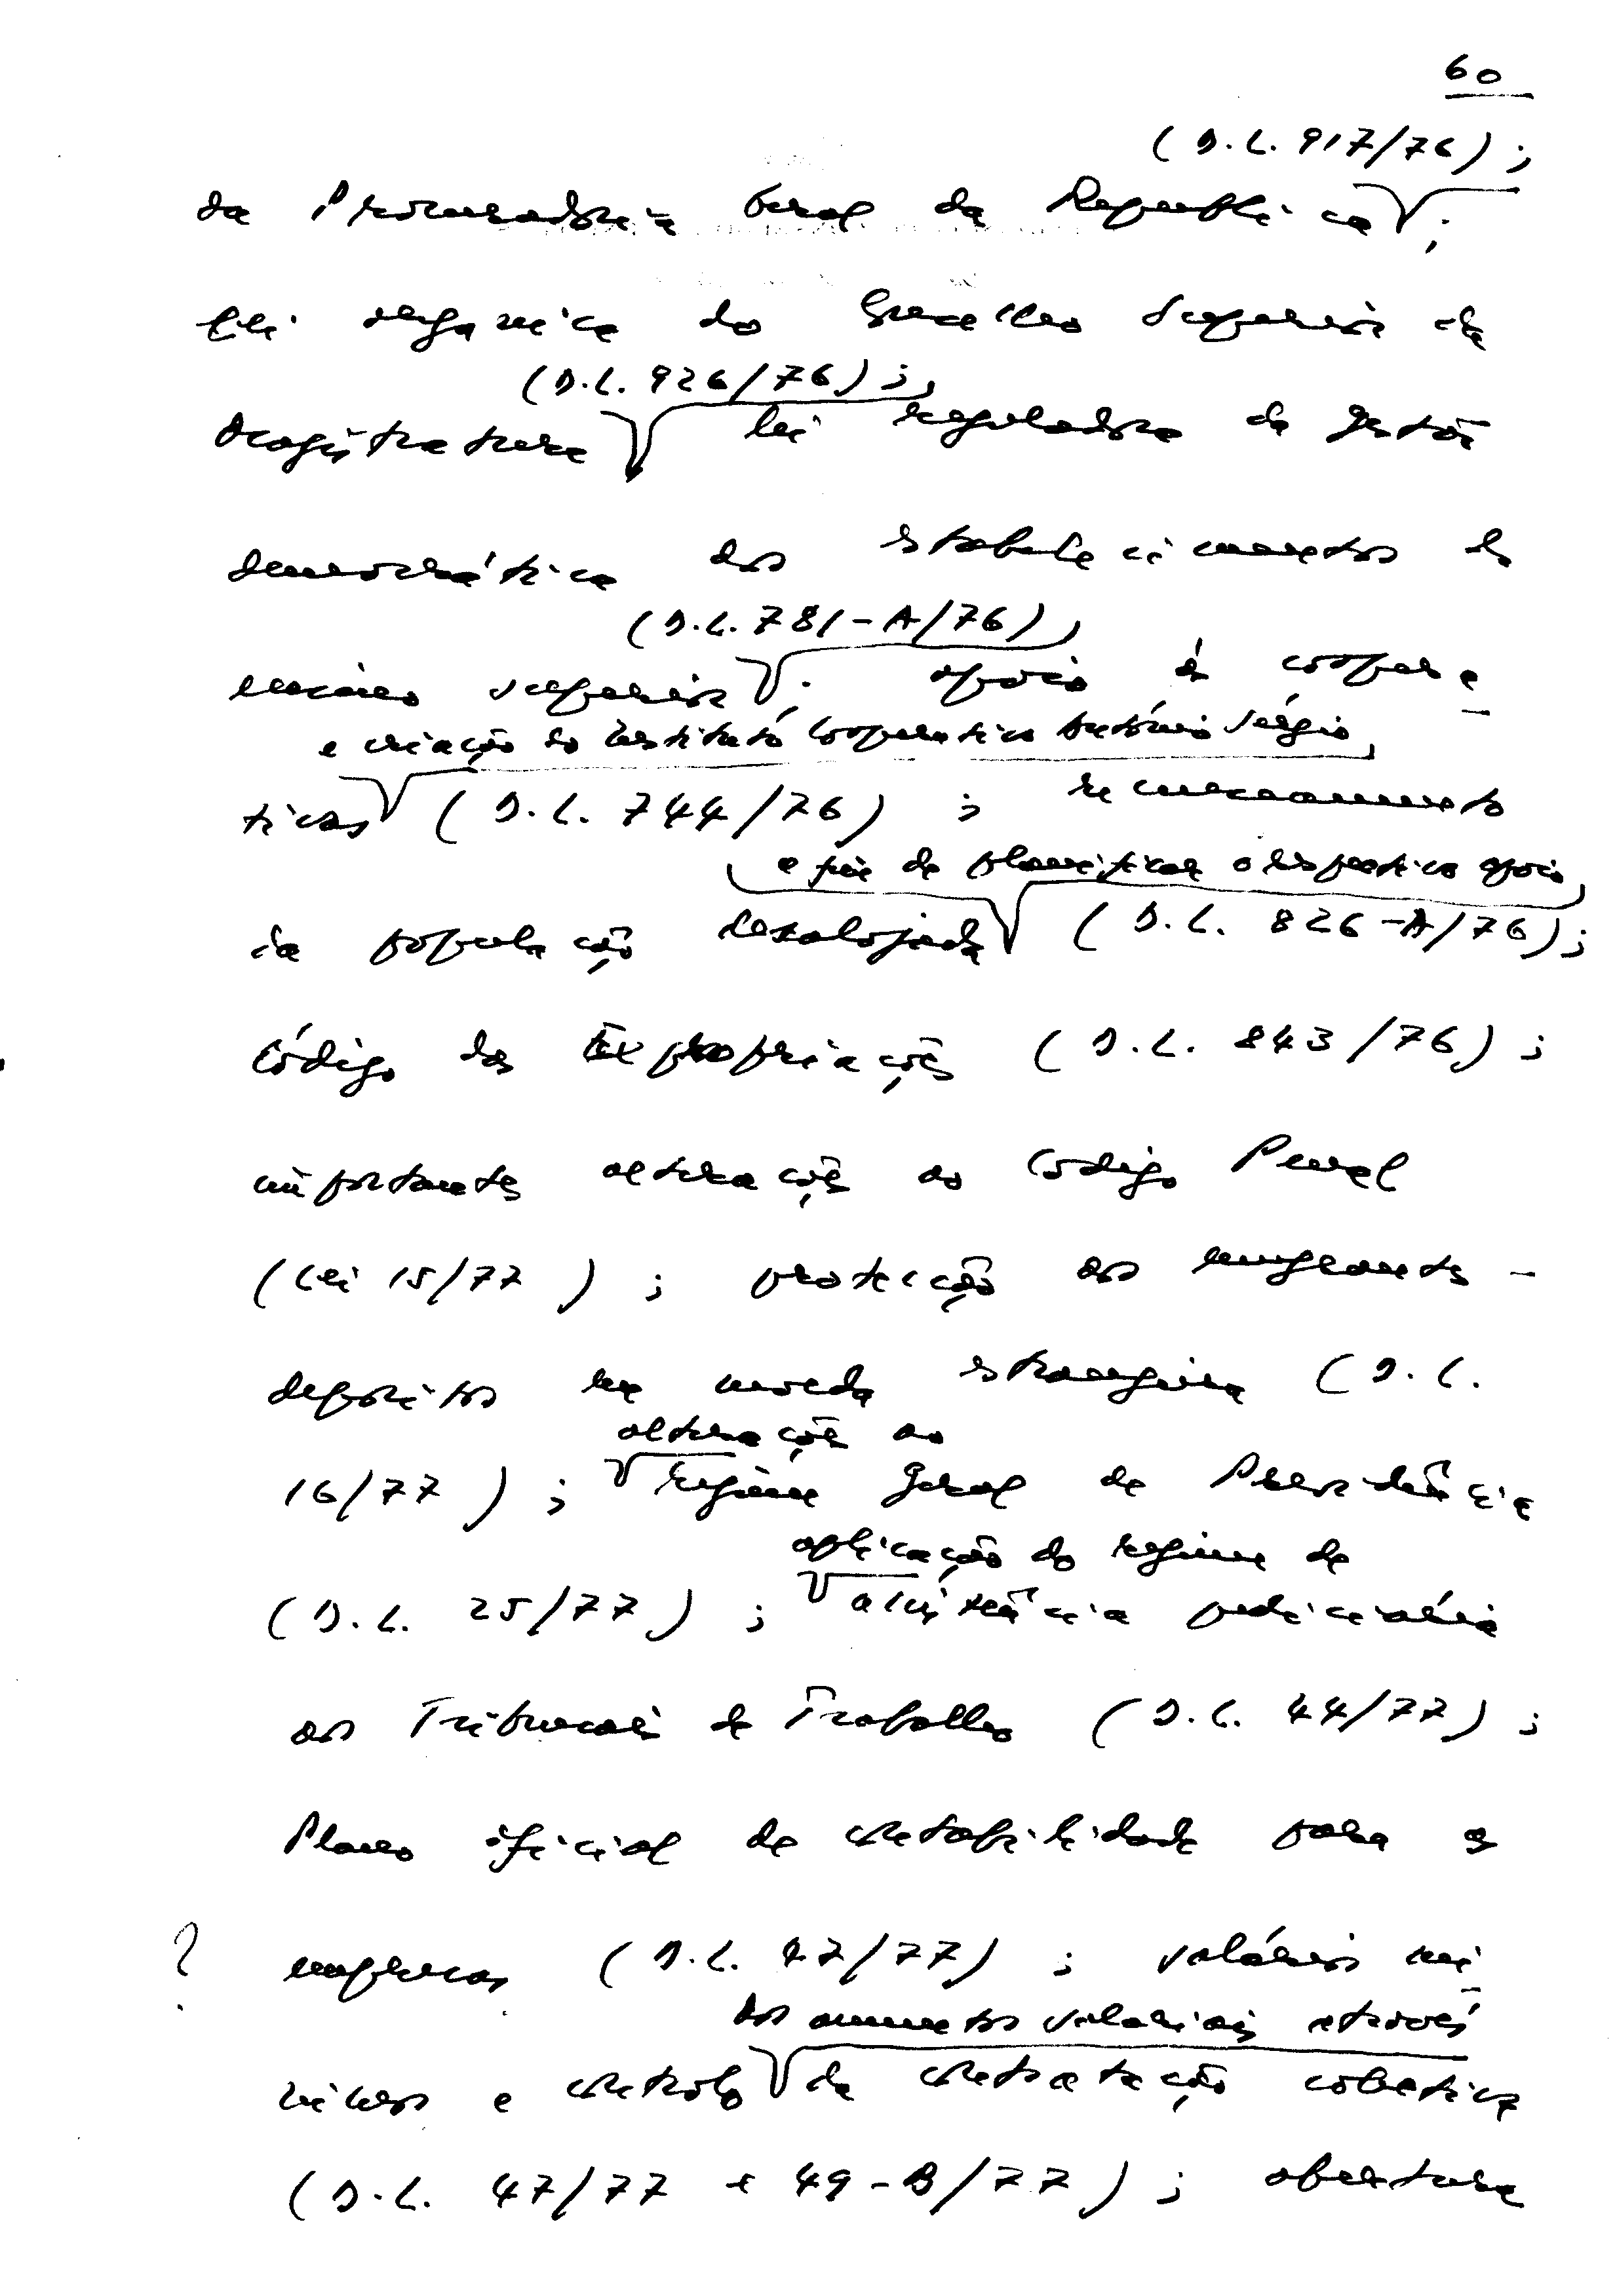 60
(D.L. 917/76);
da Procuradoria Geral da República;
lei orgânica do Conselho Superior da
(D.L. 926/76);
Magistratura lei reguladora da gestão
democrática dos estabelecimentos de
(D.L. 781-A/76)
ensino superior; apoio às coopera-
e criação do Instituto Cooperativo António Sérgio
tivas (D.L. 744/76); recenseamento
a fim de planificar o respectivo apoio
da população desalojada (D.L. 826-A/76);
Código das Expropriações (D.L. 843/76);
importantes alterações ao Código Penal
(Lei 15/77); protecção aos emigrantes -
depósitos em moeda estrangeira (D.L.
alterações ao
16/77); regime geral de Previdência
aplicação do regime de
(D.L. 25/77); assistência judiciária
aos Tribunais de Trabalho (D.L. 44/77);
Plano oficial de contabilidade para as
? empresas (D.L. 47/77); salários mí-
dos aumentos salariais através
nimos e controlo da contratação colectiva
(D.L. 47/77 e 49-B/77); abertura